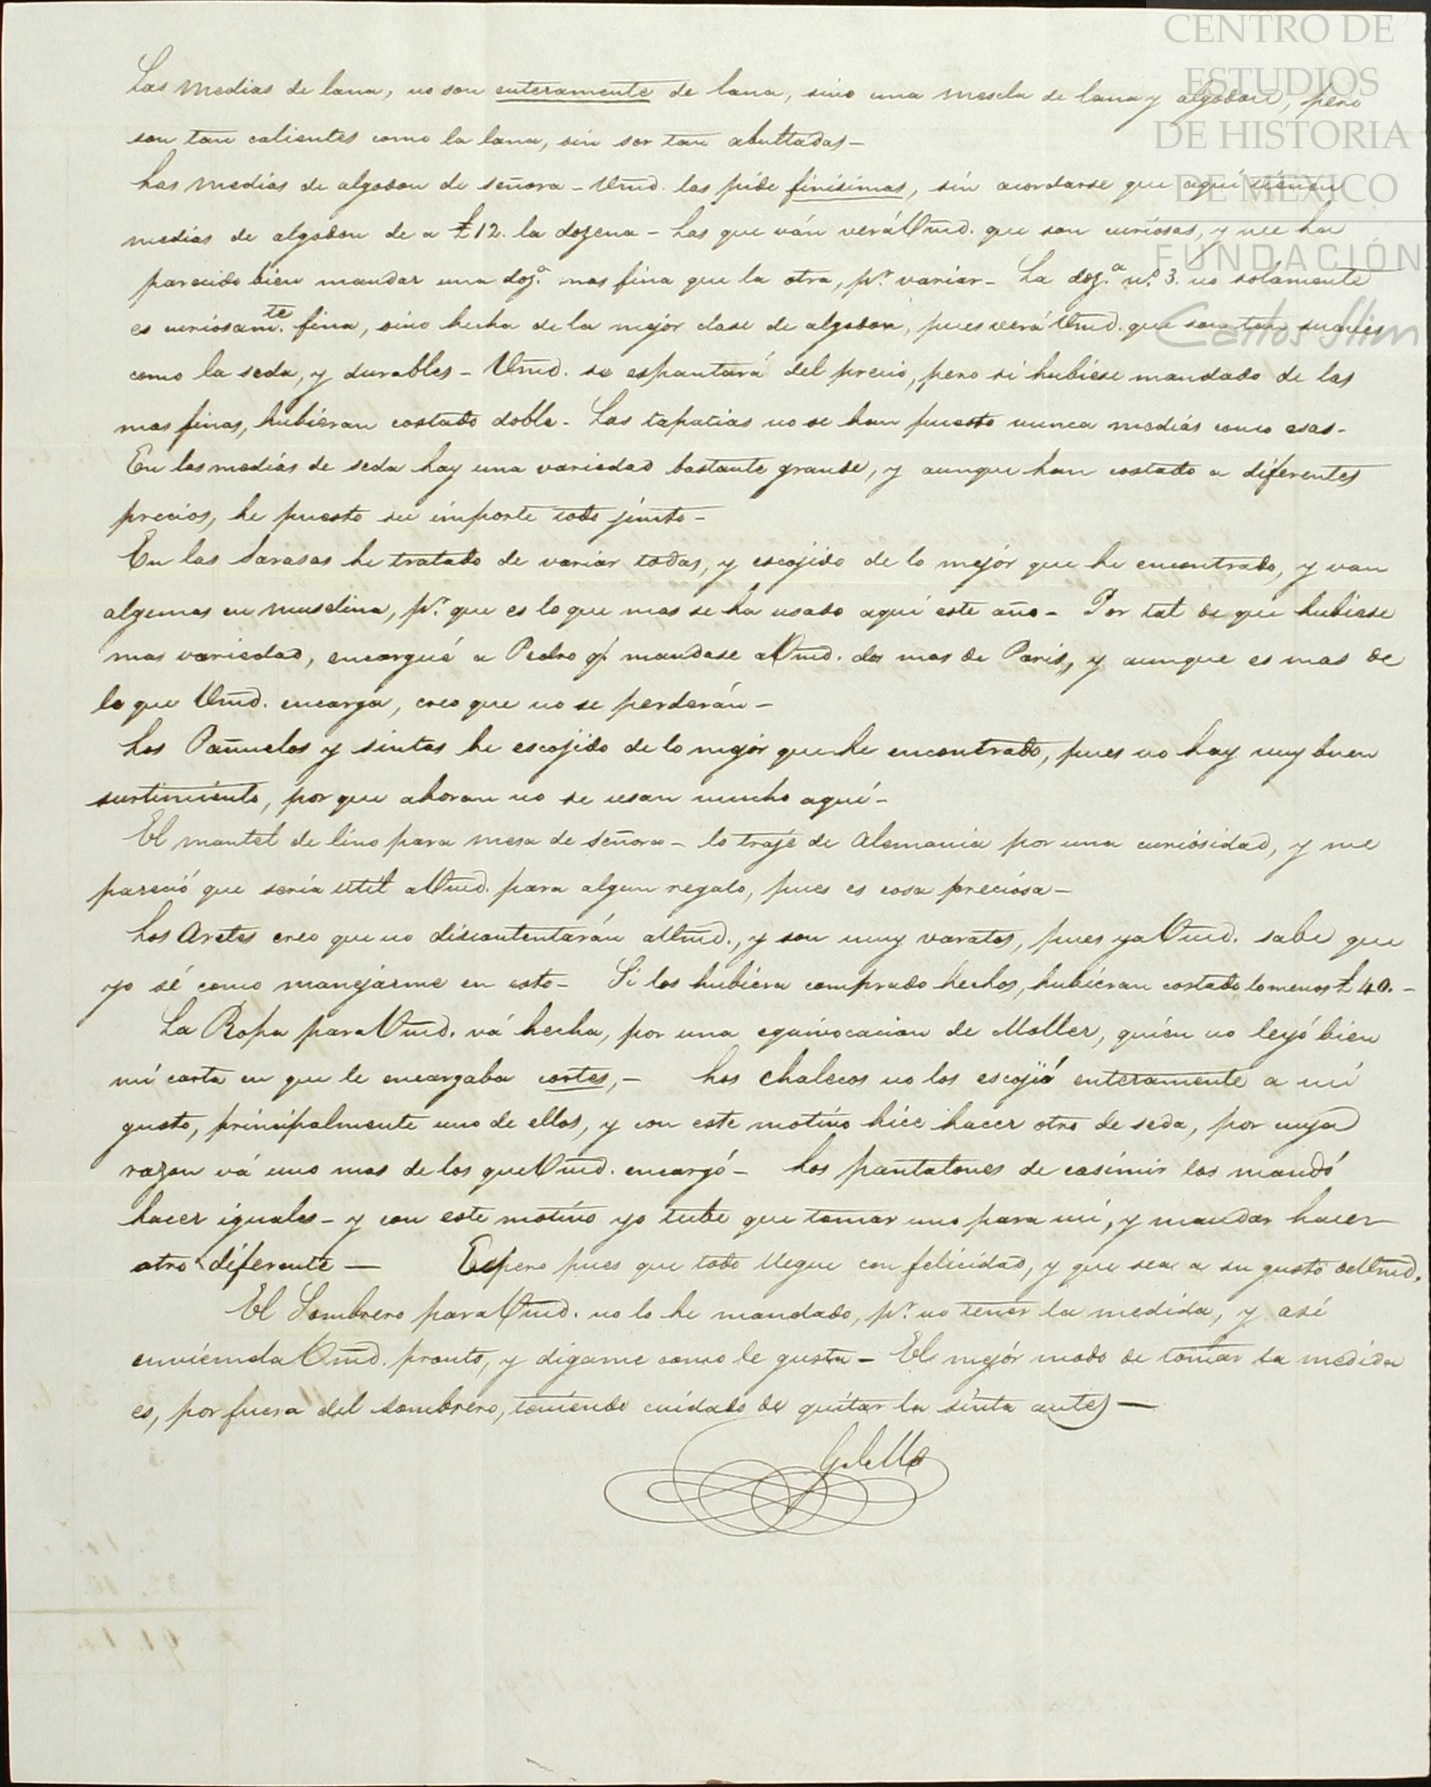 CENTRO DE
ESTUDIOS
DE HISTORIA
DE MÉXICO
FUNDACIÓN
Carlos Slim
Las medias de lana, no son enteramente de lana, sino una mescla de lana y algodon, pero
son tan calientes como la lana, sin ser tan abultadas –
Las medias de algodon de señora – Vmd. las pide finisimas, sin acordarse que aquí tienen
medias de algodon de a £12. la dozena – Las que ván verá Vmd. que son curiosas, y me ha
parecido bien mandar una doz.ª mas fina que la otra, p.r variar – La doz.ª n.º 3. no solamente
es curiosam.te fina, sino hecha de la mejór clase de algodon, pues verá Vmd. que son tan suaves
como la seda, y durables – Vmd. se espantará del precio, pero si hubiese mandado de las
mas finas, hubieran costado doble – Las tapatias no se han puesto nunca mediás como esas –
En las mediás de seda hay una variedad bastante grande, y aunque han costado a diferentes
precios, he puesto su importe todo junto –
En las Sarasas he tratado de variar todas, y escojido de lo mejór que he encontrado, y van
algunas en muselina, p.r que es lo que mas se ha usado aquí este año – Por tal de que hubiese
mas variedad, encargué a Pedro q.e mandase a Vmd. dos mas de Paris, y aunque es mas de
lo que Vmd. encarga, creo que no se perderán –
Los Pañuelos y sintas he escojido de lo mejór que he encontrado, pues no hay muy buen
surtimiento, por que ahoran no se usan mucho aquí –
El mantel de lino para mesa de señora – lo traje de Alemania por una curiósidad, y me
pareció que sería útil a Vmd. para algun regalo, pues es cosa preciósa –
Los Aretes creo que no discontentarán a Vmd., y son muy varatos, pues ya Vmd. sabe que
yo sé como manejárme en esto – Si los hubiéra comprado hechos, hubiéran costado lo menos £40. –
La Ropa para Vmd. vá hecha, por una equivocacion de Moller, quién no leyó bien
mi carta en que le encargaba cortes, – Los chalecos no los escojió enteramente a mi
gusto, principalmente uno de ellos, y con este motivo hice hacer otro de seda, por cuya
razon vá uno mas de los que Vmd. encargó – Los pantalones de casimir los mandó
hacer iguales – y con este motivo yo tube que tomar uno para mi, y mandar hacer
otro diferente – Espero pues que todo llegue con felicidad, y que sea a su gusto de Vmd.
El Sombrero para Vmd. no lo he mandado, p.r no tenér la medida, y asi
enviémela Vmd. pronto, y digame como le gusta – El mejór modo de tomar la medida
es, por fuera del sombrero, teniendo cuidado de quitar la sinta antes –